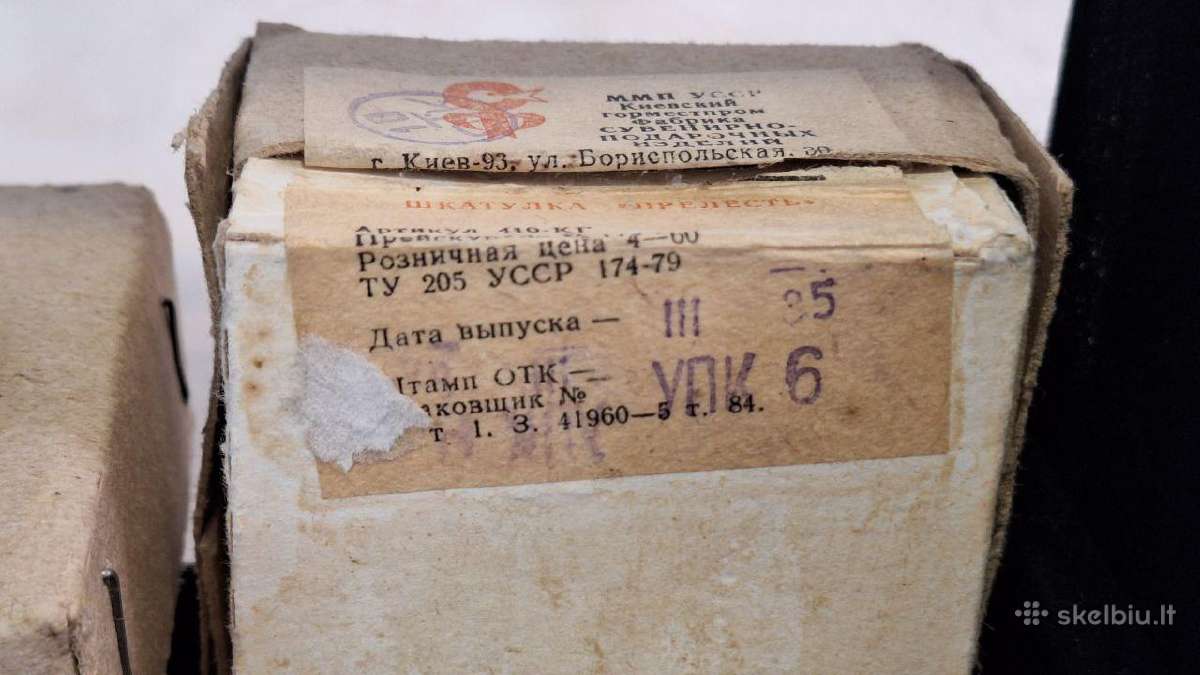 ММП УССР
Киевский
горместпром
Фабрика
СУВЕНИРНО-
ПОДАРОЧНЫХ
ИЗДЕЛИЙ
г. Киев-93, ул. Бориспольская, 30
ШКАТУЛКА «ПРЕЛЕСТЬ»
Артикул 410-КГ
Розничная цена 4—00
ТУ 205 УССР 174-79
Дата выпуска — III 85
Штамп ОТК —
аковщик № УПК 6
т. 1. З. 41960—5 т. 84.
skelbiu.lt